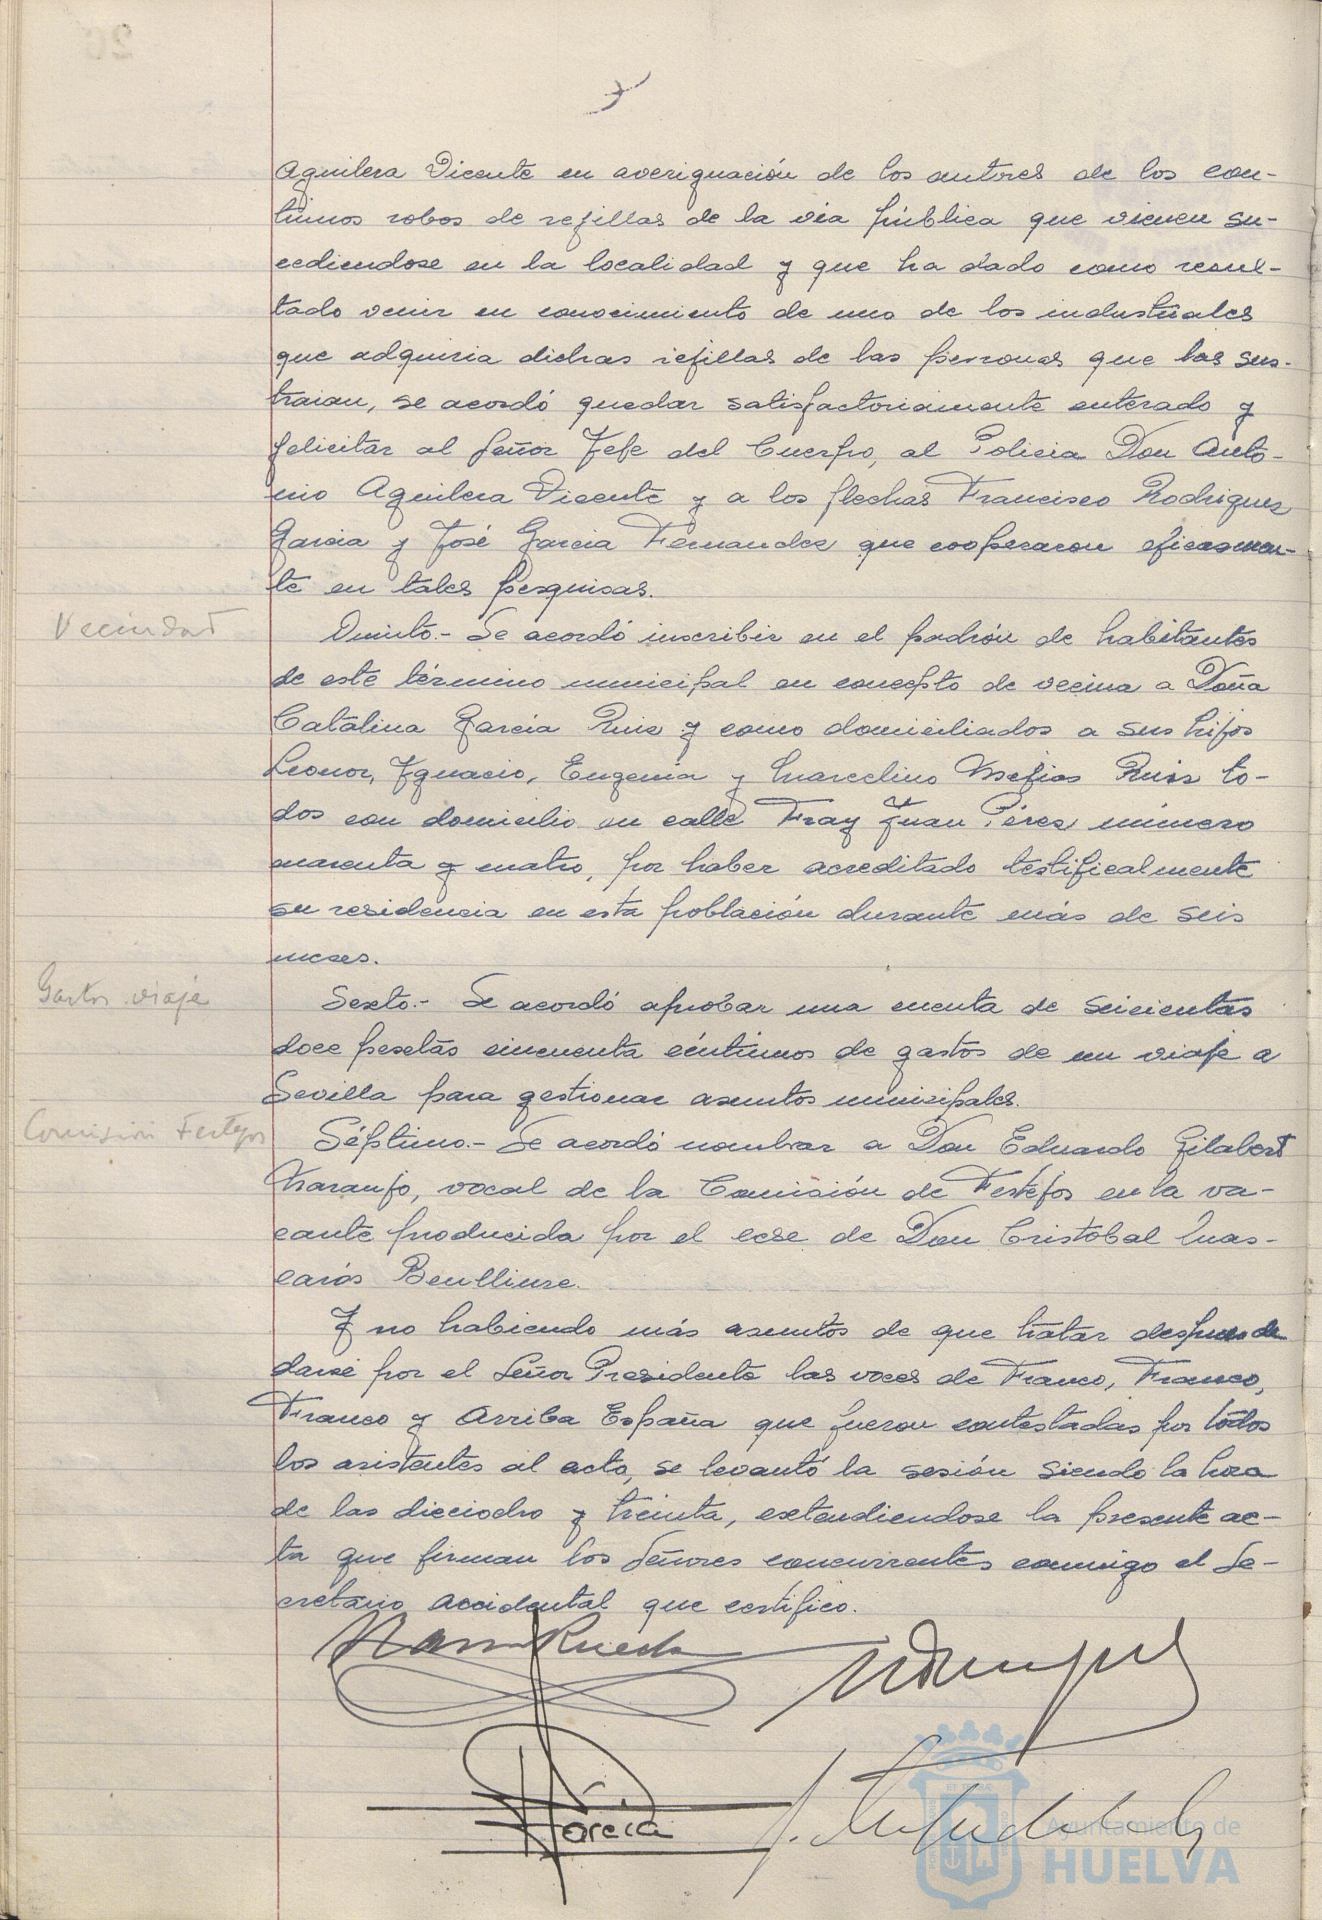 Aguilera Vicente en averiguación de los autores de los con-
tinuos robos de rejillas de la via pública que vienen su-
cediendose en la localidad y que ha dado como resul-
tado venir en conocimiento de uno de los industriales
que adquiria dichas rejillas de las personas que las sus-
traian, se acordó quedar satisfactoriamente enterado y
felicitar al Señor Jefe del Cuerpo, al Policia Don Anto-
nio Aguilera Vicente y a los flechas Francisco Rodriguez
Garcia y José Garcia Fernandez que cooperaron eficazmen-
te en tales pesquisas.
Vecindad
Quinto.- Se acordó inscribir en el padrón de habitantes
de este término municipal en concepto de vecina a Doña
Catalina García Ruiz y como domiciliados a sus hijos
Leonor, Ygnacio, Eugenia y Marcelino Mejias Ruiz to-
dos con domicilio en calle Fray Juan Pérez número
cuarenta y cuatro, por haber acreditado testificalmente
su residencia en esta población durante más de seis
meses.
Gastos viaje
Sexto.- Se acordó aprobar una cuenta de seicientas
doce pesetas cincuenta céntimos de gastos de un viaje a
Sevilla para gestionar asuntos municipales.
Comisión Festejos
Séptimo.- Se acordó nombrar a Don Eduardo Gilabert
Naranjo, vocal de la Comisión de Festejos en la va-
cante producida por el cese de Don Cristobal Mas-
carós Benlliure.
Y no habiendo más asuntos de que tratar despues de
darse por el Señor Presidente las voces de Franco, Franco,
Franco y Arriba España que fueron contestadas por todos
los asistentes al acto, se levantó la sesión siendo la hora
de las dieciocho y treinta, extendiendose la presente ac-
ta que firman los Señores concurrentes conmigo el Se-
cretario accidental que certifico.
García
Ayuntamiento de
HUELVA